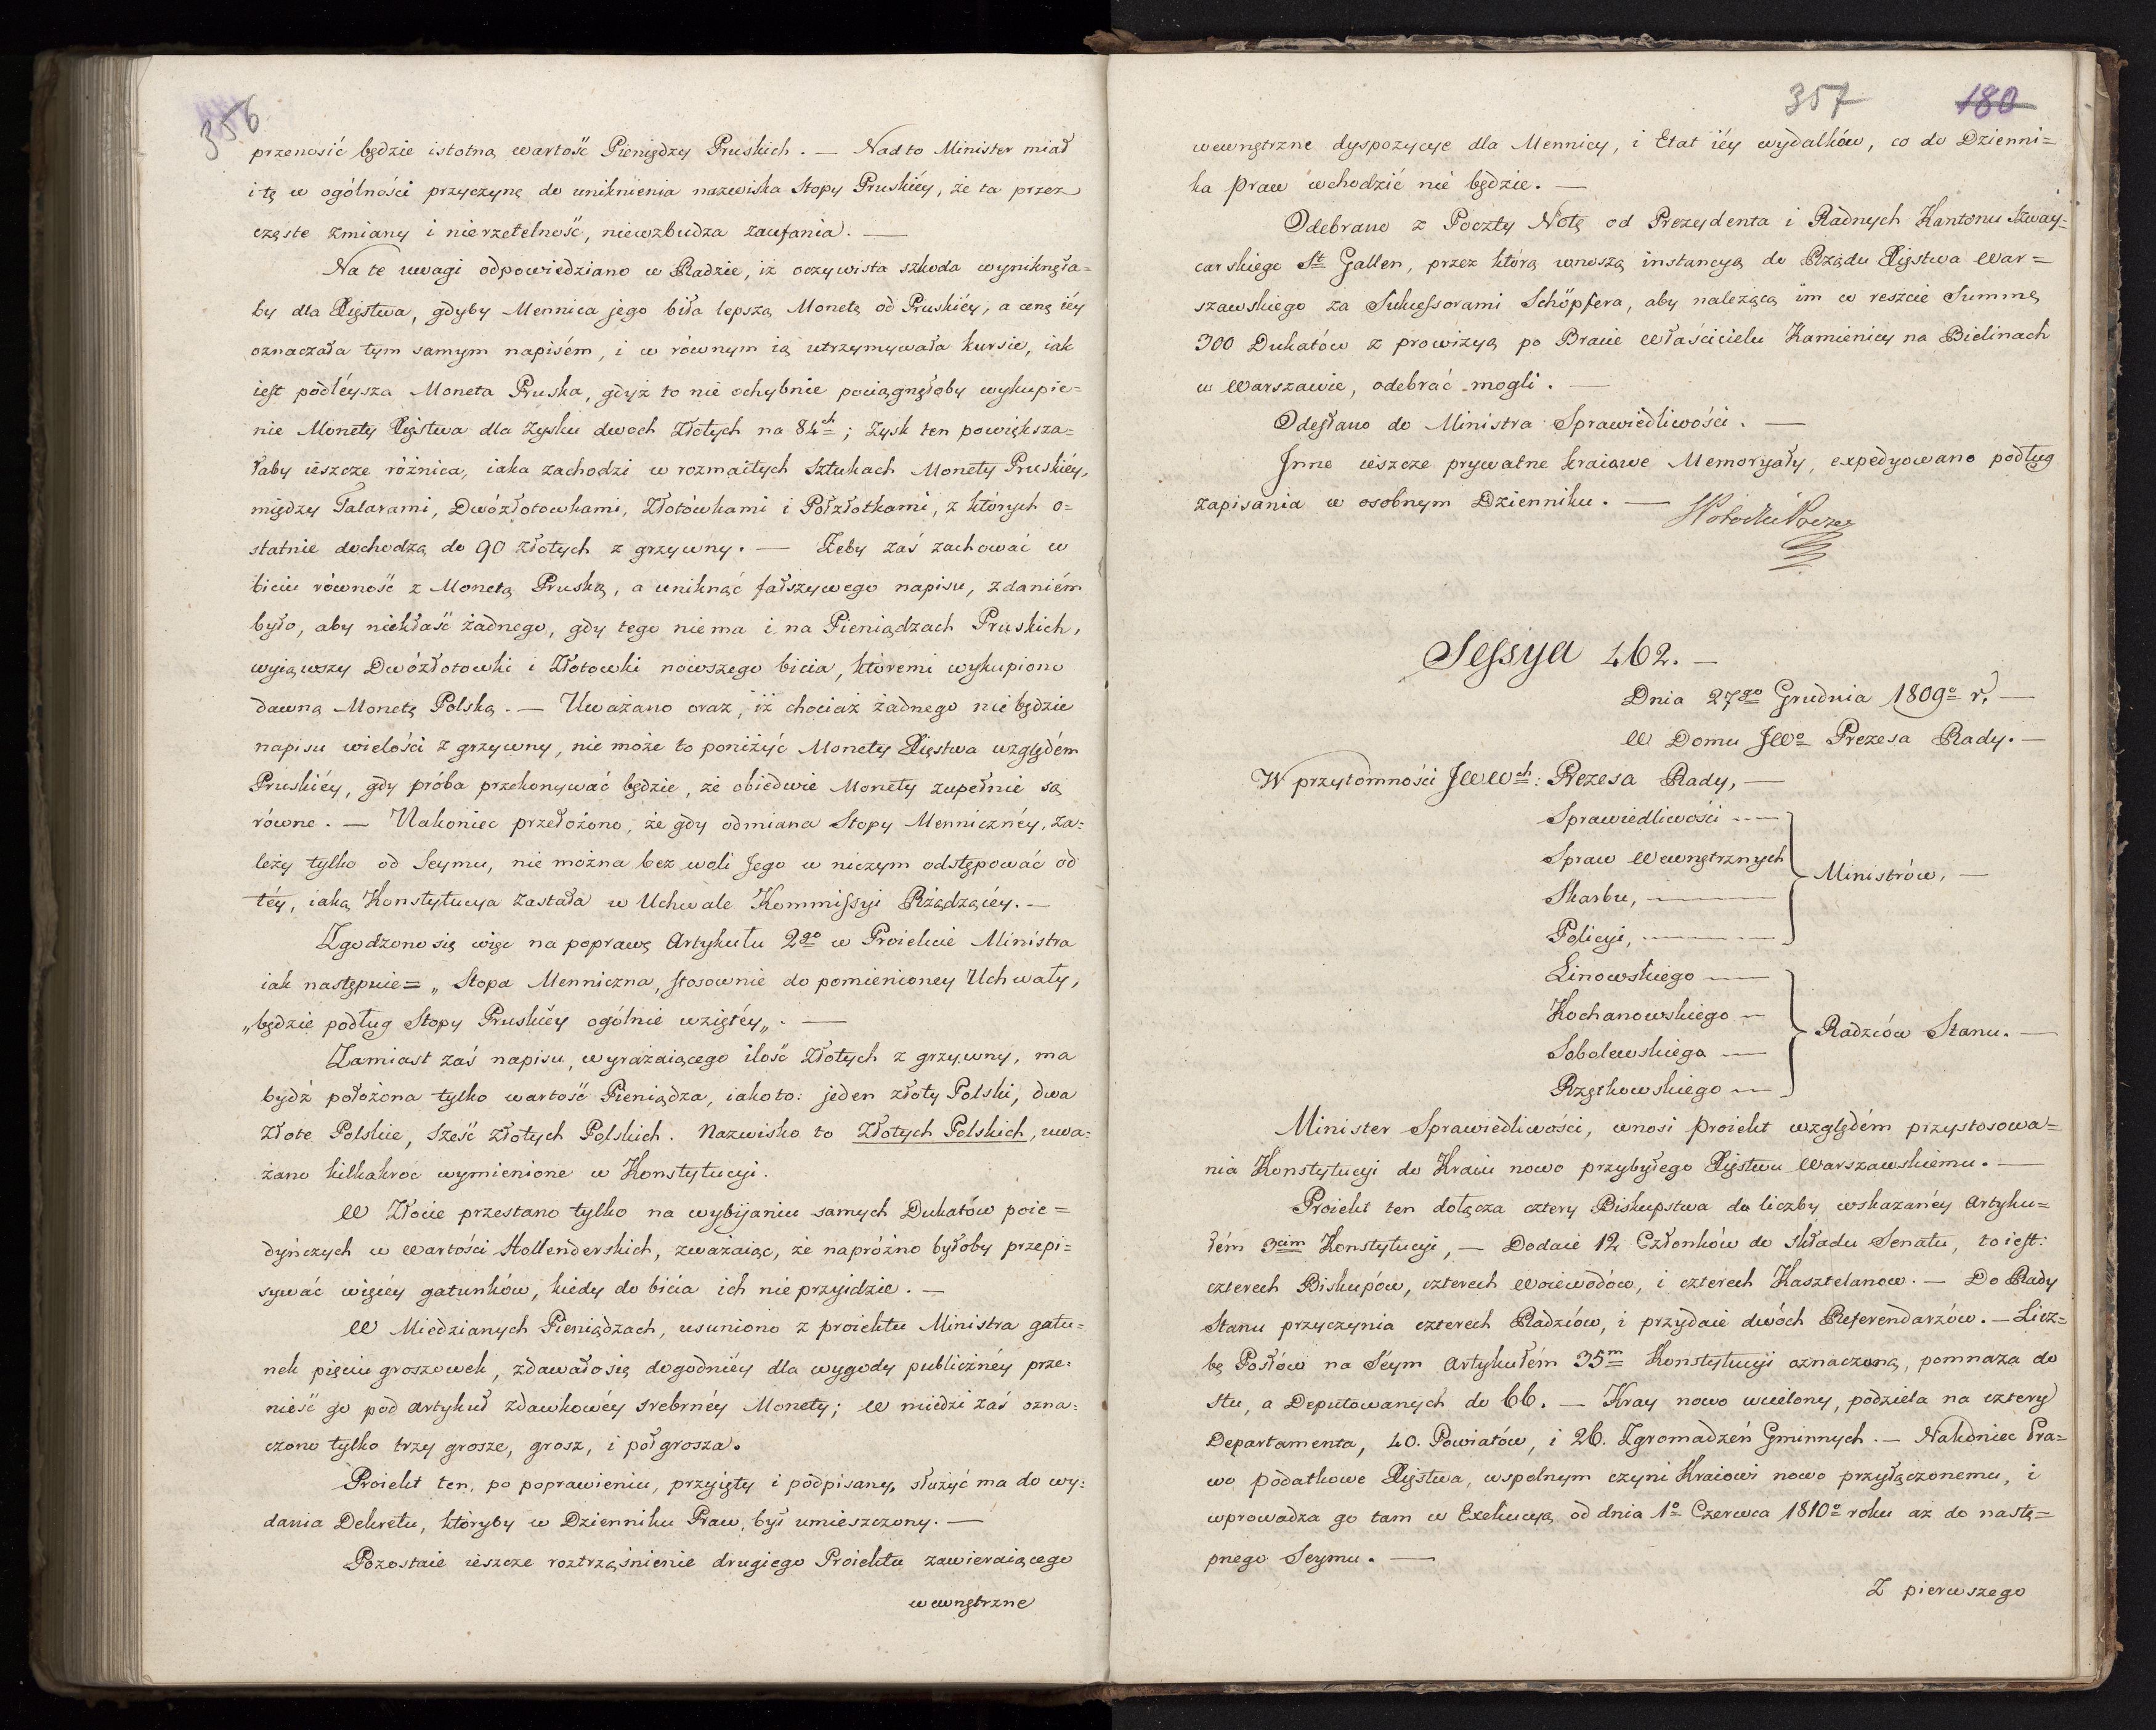 356
przenosić będzie istotną wartość Pieniędzy Pruskich. — Nadto Minister miał
i tę w ogólności przyczynę do uniknienia nazwiska Stopy Pruskiéy, że ta przez
częste zmiany i nierzetelność, niewzbudza zaufania. —
Na te uwagi odpowiedziano w Radzie, iż oczywista szkoda wyniknęła=
by dla Xięstwa, gdyby Mennica jego biła lepszą Monetę od Pruskiéy, a cenę iéy
oznaczała tym samym napisém, i w równym ią utrzymywała kursie, iak
iest podléysza Moneta Pruska, gdyż to nie ochybnie pociągnęłoby wykupie=
nie Monety Xięstwa dla zysku dwoch Złotych na 84ch; Zysk ten powiększa=
łaby ieszcze różnica, iaka zachodzi w rozmaitych Sztukach Monety Pruskiéy,
między Talarami, Dwózłotowkami, Złotówkami i Półzłotkami, z których o=
statnie dochodzą do 90 złotych z grzywny. — Żeby zaś zachować w
biciu równość z Monetą Pruską, a uniknąć fałszywego napisu, zdaniém
było, aby niekłaść żadnego, gdy tego niema i na Pieniądzach Pruskich,
wyiąwszy Dwózłotowki i Złotowki nowszego bicia, któremi wykupiono
dawną Monetę Polską. — Uważano oraz, iż chociaż żadnego nie będzie
napisu wielości z grzywny, nie może to poniżyć Monety Xięstwa względém
Pruskiéy, gdy próba przekonywać będzie, że obiedwie Monety zupełnie są
równe. — Nakoniec przełożono, że gdy odmiana Stopy Mennicznéy, za=
leży tylko od Seymu, nie można bez woli Jego w niczym odstępować od
téy, iaką Konstytucya zastała w Uchwale Kommissyi Rządzącéy. —
Zgodzono się więc na poprawę Artykułu 2go w Proiekcie Ministra
iak następuie = „Stopa Menniczna, stosownie do pomienioney Uchwały,
„będzie podług Stopy Pruskiéy ogólnie wziętéy„. —
Zamiast zaś napisu, wyrażaiącego ilość Złotych z grzywny, ma
bydź położona tylko wartość Pieniądza, iakoto: jeden złoty Polski, dwa
Złote Polskie, Sześć złotych Polskich. Nazwisko to Złotych Polskich, uwa=
żano kilkakroc wymienione w Konstytucyi.
W Złocie przestano tylko na wybijaniu samych Dukatów poie=
dyńczych w wartości Hollenderskich, zważaiąc, że napróżno byłoby przepi=
sywać więcéy gatunków, kiedy do bicia ich nie przyidzie. —
W Miedzianych Pieniądzach, usuniono z proiektu Ministra gatu=
nek pięciu groszowek, zdawało się dogodniéy dla wygody publicznéy prze=
nieść go pod Artykuł zdawkowéy srebrnéy Monety; w miedzi zaś ozna=
czono tylko trzy grosze, grosz, i półgrosza.
Proiekt ten, po poprawieniu, przyięty i podpisany, służyć ma do wy=
dania Dekretu, któryby w Dzienniku Praw, był umieszczony. —
Pozostaie ieszcze roztrząśnienie drugiego Proiektu zawieraiącego
wewnętrzne
357 180
wewnętrzne dyspozycye dla Mennicy, i Etat iéy wydatków, co do Dzienni=
ka Praw wchodzić nie będzie. —
Odebrano z Poczty Notę od Prezydenta i Radnych Kantonu Szway=
carskiego St Gallen, przez którą wnoszą instancyą do Rządu Xięstwa War=
szawskiego za Sukcessorami Schöpfera, aby należącą im w reszcie Summę
300 Dukatów z prowizyą po Braiie Właścicielu Kamienicy na Bielinach
w Warszawie, odebrać mogli. —
Odesłano do Ministra Sprawiedliwości. —
Inne ieszcze prywatne kraiowe Memoryały, expedyowano podług
zapisania w osobnym Dzienniku. —
Sessya 462. —
Dnia 27go Grudnia 1809o r. —
W Domu JWo Prezesa Rady. —
W przytomności JWWch: Prezesa Rady, —
Sprawiedliwości —
Spraw Wewnętrznych
Ministrów, —
Skarbu, —
Policyi, —
Linowskiego —
Kochanowskiego —
Radzców Stanu. —
Sobolewskiego —
Rzętkowskiego —
Minister Sprawiedliwości, wnosi proiekt względém przystosowa=
nia Konstytucyi do Kraiu nowo przybyłego Xięstwu Warszawskiemu. —
Proiekt ten dołącza cztery Biskupstwa do liczby wskazanéy Artyku=
łém 3cim Konstytucyi, — Dodaie 12 Członków do składu Senatu, to iest:
czterech Biskupów, czterech Woiewodów, i czterech Kasztelanow. — Do Rady
Stanu przyczynia czterech Radzców, i przydaie dwóch Referendarzów. — Licz=
bę Posłów na Séym Artykułém 35m Konstytucyi oznaczoną, pomnaża do
stu, a Deputowanych do 66. — Kray nowo wcielony, podziela na cztery
Departamenta, 40. Powiatów, i 26. Zgromadzeń Gminnych. — Nakoniec Pra=
wo podatkowe Xięstwa, wspolnym czyni Kraiowi nowo przyłączonemu, i
wprowadza go tam w Exekucyą od dnia 1o Czerwca 1810o roku aż do nastę=
pnego Seymu. —
Z pierwszego